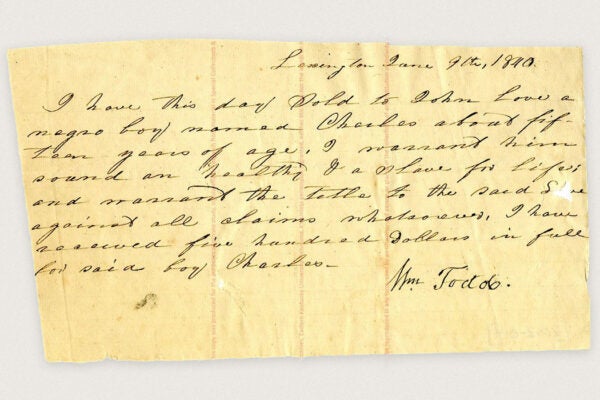 Lexington June 9th, 1840.
I have this day Sold to John Love a
negro boy named Charles about fif-
teen years of age, I warrant him
sound an healthy & a slave for life;
and warrant the title to the said
against all claims whatsoever, I have
received five hundred Dollars in full
for said boy Charles-
Wm Todd.